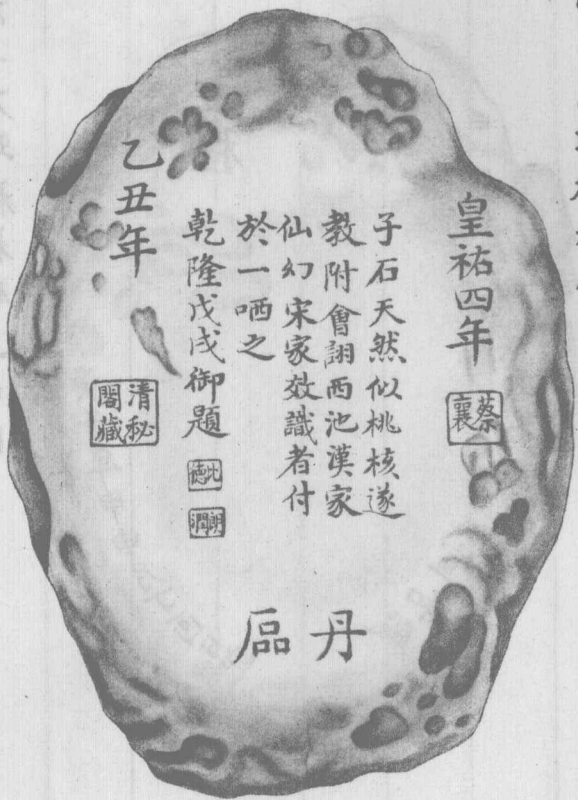 皇祐四年
蔡襄
子石天然似桃核遂
教附會詡西池漢家
仙幻宋家效識者付
於一哂之
乾隆戊戌御題
比德
朗潤
乙丑年
清秘閣藏
丹